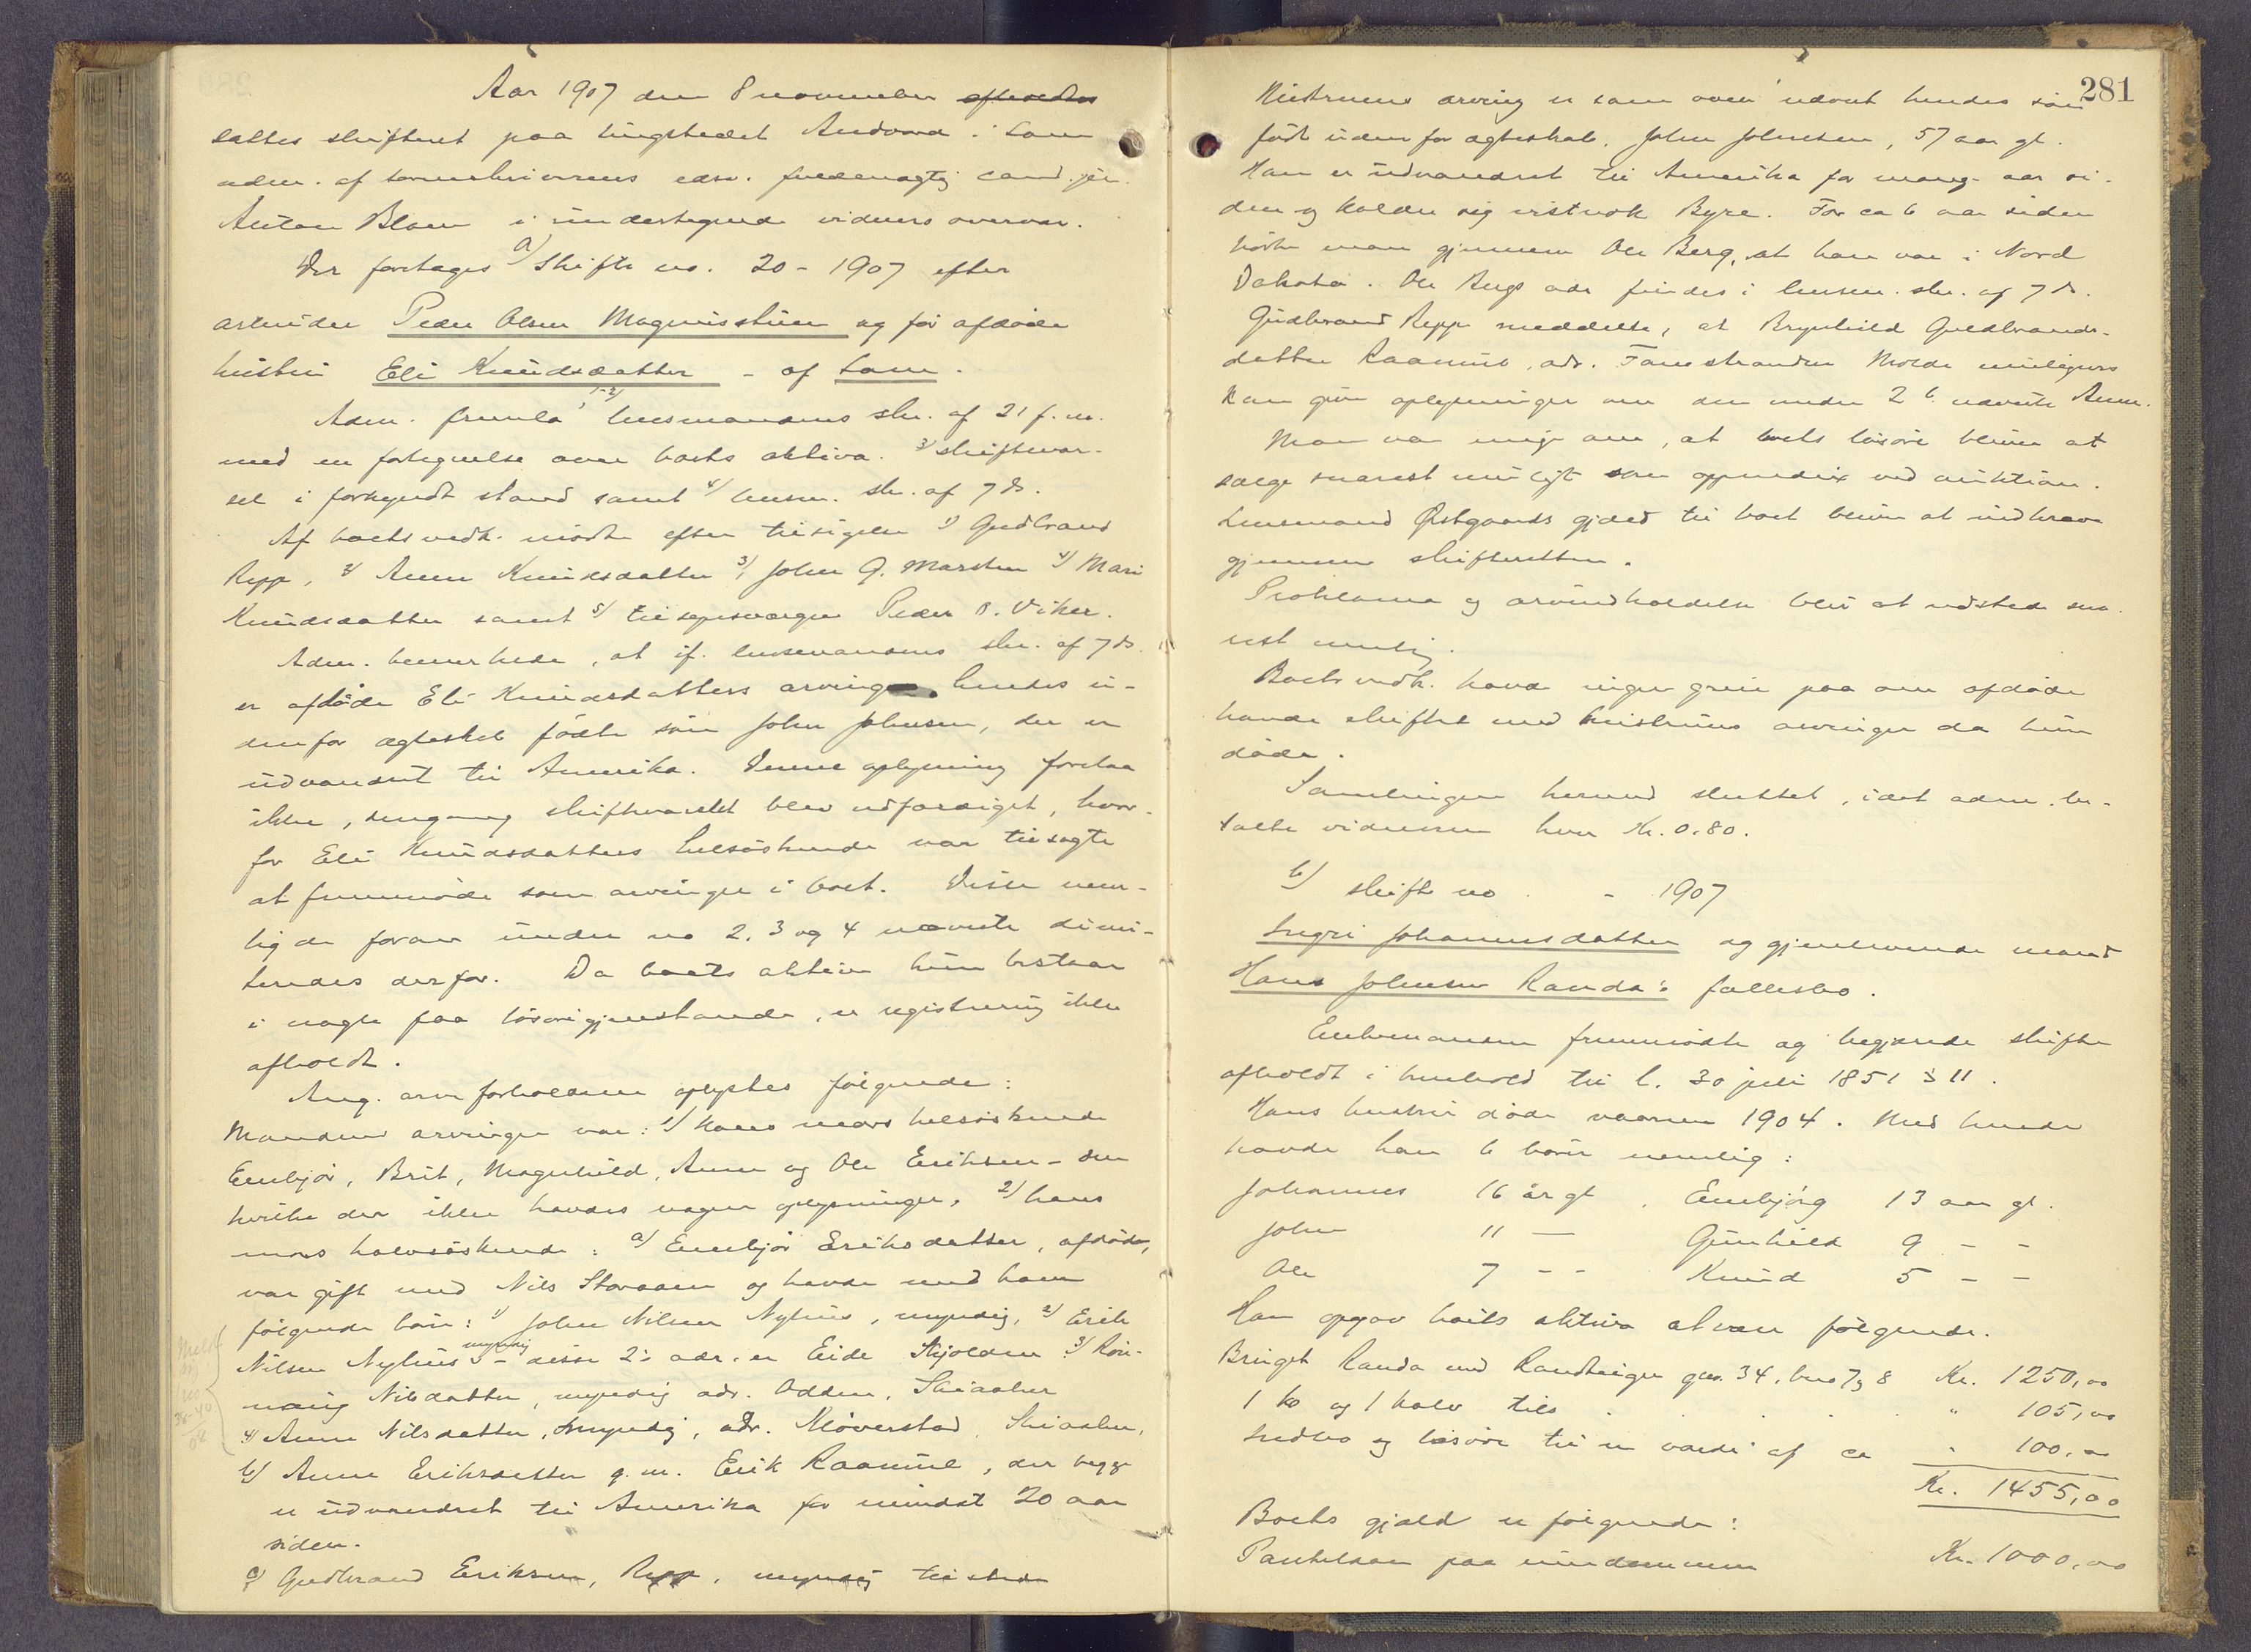 Aar 1907 den 8 november afholdtes
sattes skifteret paa tingstedet Andvord i Lom
adm. af sorenskriverens edsv. fuldmægtig cand. jur.
Anton Blom i undertegnede vidners overvær.
Der foretages a) Skifte no. 20 - 1907 efter
arbeider Peder Olsen Magnusstuen og før afdøde
hustru Eli Knudsdatter - af Lom.
Adm. fremla 1-2) lensmandens skr. af 21 f. m.
med en fortegnelse over boets aktiva. 3) skiftevar-
sel i forkyndt stand samt 4) lensm. skr. af 7 ds.
Af boets vedk. mødte efter tilsigelse 1) Gudbrand
Repp, 2) Anne Knudsdatter 3) John G. Marsten 4) Mari
Knudsdatter samt 5) tilsynsværgen Peder O. Viker.
Adm. bemerkede, at if. lensmandens skr. af 7 ds.
er afdøde Eli Knudsdatters arving hendes u-
denfor ægteskab fødte søn John Johnsen, der er
udvandret til Amerika. Denne oplysning forelaa
ikke, dengang skiftevarslet blev udfærdiget, hvor-
for Eli Knudsdatters helsøskende var tilsagte
at fremmøde som arvinger i boet. Disse nem-
lig de foran under no 2, 3 og 4 nævnte dimi-
tendes derfor. Da boets aktiva kun bestaar
i nogle faa løsøregjenstande, er registrering ikke
afholdt.
Ang. arveforholdene oplystes følgende:
Mandens arvinger var: 1) Hans mors helsøskende
Embjør, Brit, Magnhild, Anne og Ole Eriksen - om
hvilke der ikke havdes nogen oplysninger, 2) hans
mors halvsøskende: a) Embjør Eriksdatter, afdøde,
var gift med Nils Storaaen og havde med ham
følgende børn: 1) John Nilsen Nyhus, myndig, 2) Erik
Nilsen Nyhus myndig - disse 2's adr. er Eide Skjolden 3) Røn-
naug Nilsdatter, myndig adr. Odden, Skiaaker
4) Anne Nilsdatter, myndig, adr. Kløverstad, Skiaaker,
b) Anne Eriksdatter g. m. Erik Raamue, der begge
er udvandret til Amerika for mindst 20 aar
siden.
c) Gudbrand Eriksen, Repp, myndig tilstede
281
Hustruens arving er som oven nævnt hendes søn
født udenfor ægteskab, John Johnsen, 57 aar gl.
Han er udvandret til Amerika for mange aar si-
den og kalder sig vistnok Byre. For ca 6 aar siden
hørte man gjennem Ole Berg, at han var i Nord
Dakota. Ole Bergs adr findes i lensm. skr. af 7 ds.
Gudbrand Repp meddelte, at Brynhild Gudbrands-
datter Raamue, adr. Fannestranden Molde muligens
kan give oplysninger om den under 2 b. nævnte Anne.
Man var enige om, at boets løsøre bliver at
sælge snarest muligt som appendix ved auktion.
Lensmand Østgaards gjæld til boet bliver at indkræve
gjennem skifteretten.
Proklama og arveindkaldelse bliver at udstede sna-
rest mulig.
Boets vedk. havde ingen greie paa om afdøde
havde skiftet med hustruens arvinger da hun
døde.
Samlingen hermed sluttet, idet adm. be-
talte vidnerne hver Kr. 0.80.
b) skifte no - 1907
Ingri Johannesdatter og gjenlevende mand
Hans Johnsen Randa's fællesbo.
Enkemanden fremmødte og begjærede skifte
afholdt i henhold til l. 30 juli 1851 § 11.
Hans hustru døde vaaren 1904. Med hende
havde han 6 børn nemlig:
Johannes 16 år gl. Embjørg 13 aar gl.
John 11 — Gunhild 9 - -
Ole 7 - - Knud 5 - -
Han opgav boets aktiva at være følgende.
Bruget Randa med Randteigen gno. 34, bno 7 og 8 Kr. 1250,00
1 ko og 1 kalv tils. " 105,00
Indbo og løsøre til en værdi af ca " 100,00
Kr. 1455,00
Boets gjæld er følgende:
Pantelaan paa eiendommen Kr. 1000,00